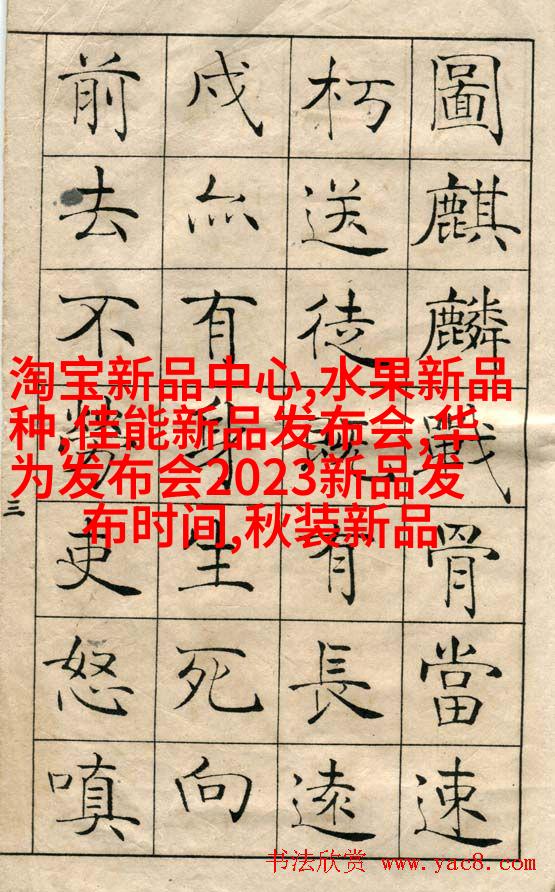 圖麒麟戰骨當速
朽送徒有長遠
戍亦有身生死向
前去不勞吏怒嗔
三
淘宝新品中心,水果新品
种,佳能新品发布会,华
为发布会2023新品发
布时间,秋装新品
书法欣赏 www.yac8.com